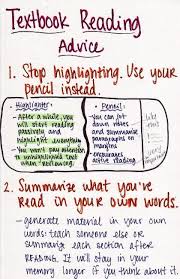 Textbook Reading
Advice
1. Stop highlighting. Use your
pencil instead.
Highlighter:
- After a while, you
will start reading
passively and
highlight everything
- You won't pay attention
to unhighlighted text
when reviewing.
Pencil:
- You can jot
down notes
and summarize
paragraphs on
margins
- encourages
active reading.
2. Summarize what you've
read in your own words.
- generate material in your own
words: teach someone else or
summarize each section after
READING. It will stay in your
memory longer if you think about it